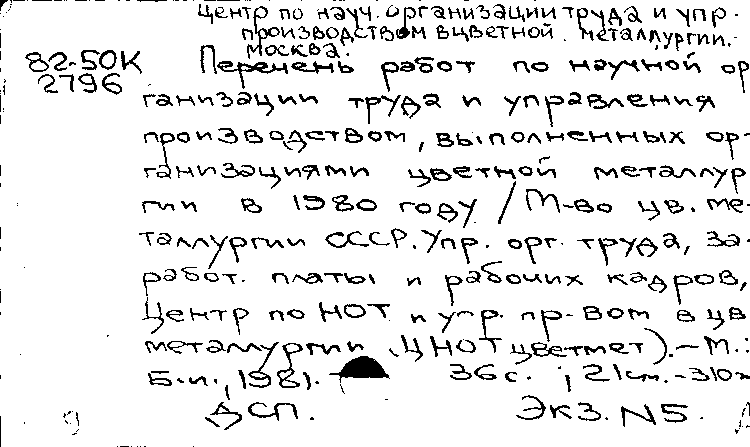 Центр по науч. организации труда и упр.
производством в цветной металлургии.
Москва.
82-50К
2796
Перечень работ по научной ор
ганизации труда и управления
производством, выполненных ор-
ганизациями цветной металлур
гии в 1980 году / М-во цв. ме-
таллургии СССР. Упр. орг. труда, за-
работ. платы и рабочих кадров,
Центр по НОТ и упр. пр-вом в цв
металлургии (ЦНОТцветмет). - М.:
Б.и., 1981. - 36 с. ; 21 см. - 310
ДСП. Экз. N5.
9